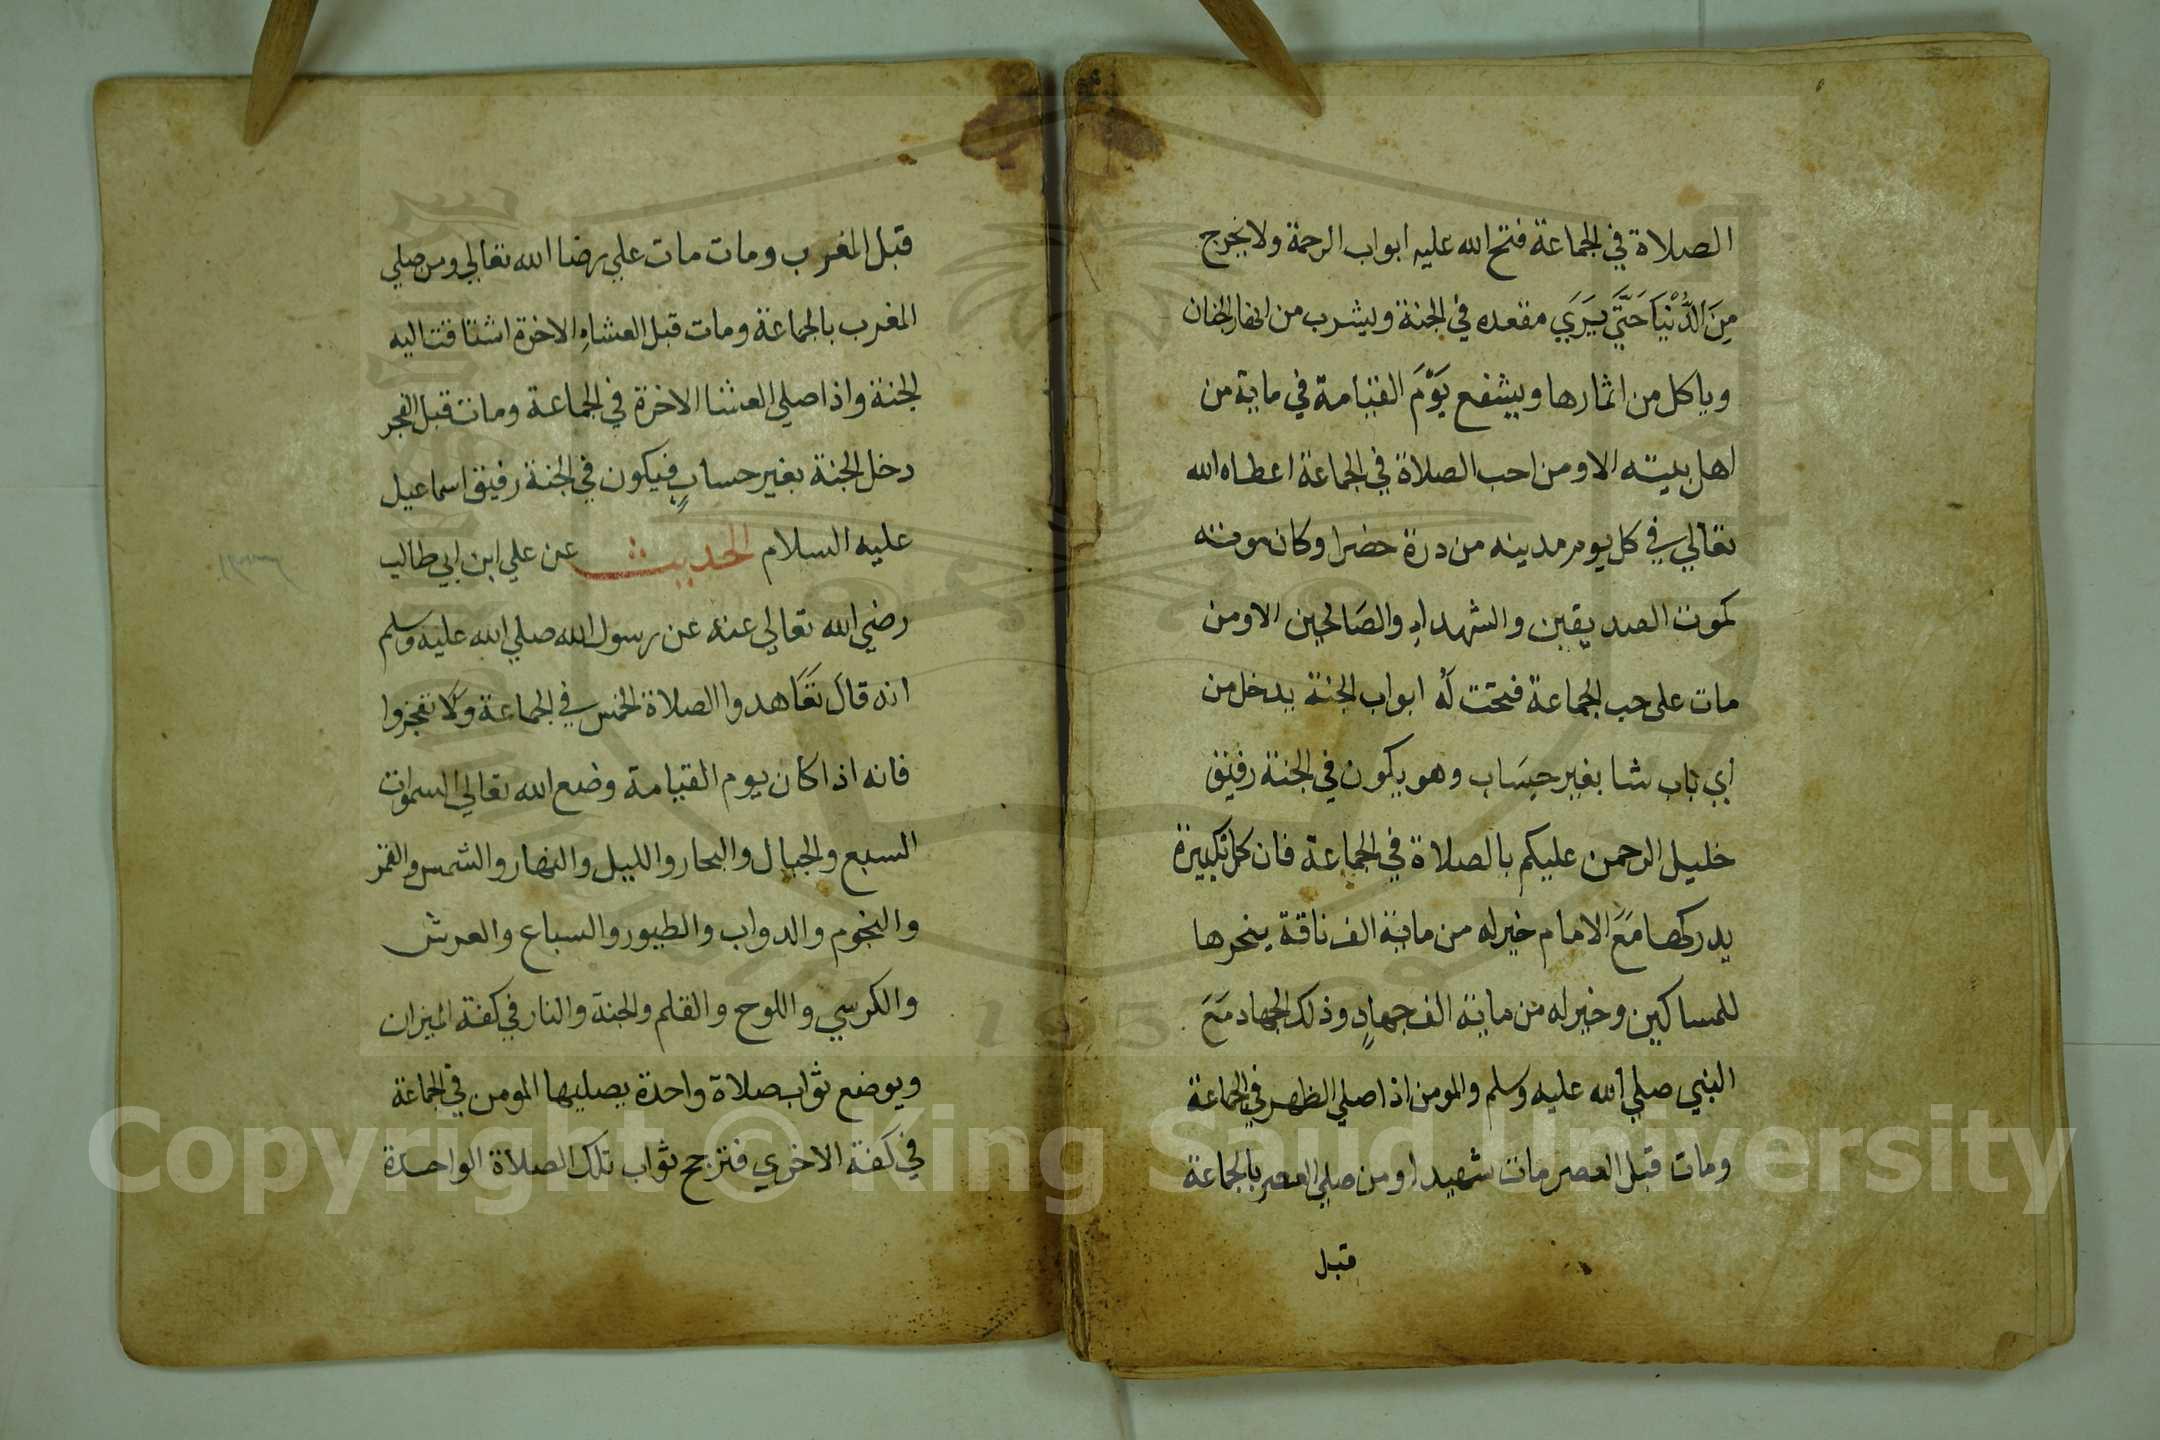 الصلاة في الجماعة فتح الله عليه ابواب الرحمة ولا يخرج
مِنَ الدُّنْيَا حَتَّي يَرَي مقعده في الجنة ويشرب من انهار الجنان
وياكل من اثمارها ويشفع يَوْمَ القيامة في ماية من
اهل بيته الا ومن احب الصلاة في الجماعة اعطاه الله
تعالي في كل يوم مدينه من درة خضرا وكان موته
كموت الصديقين والشهداء والصَالحين الا ومن
مات على حب الجماعة فتحت لَه ابواب الجنة يدخل من
اي باب شا بغير حسَاب وهو يكون في الجنة رفيق
خليل الرحمن عليكم بالصلاة في الجماعة فان كل تكبيرة
يدركها مَعَ الامام خير له من ماية الف ناقة ينحرها
للمساكين وخير له من ماية الف جهادٍ وذلك الجهاد مَعَ
النبي صلي الله عليه وسلم والمومن اذا صلي الظهر في الجماعة
ومات قبل العصر مات شهيدا ومن صلي العصر بالجماعة
قبل
قبل المغرب ومات مات علي رضا الله تعالي ومن صلي
المغرب بالجماعة ومات قبل العشاءِ الاخرة اشتاقت اليه
الجنة واذا صلي العشا الاخرة في الجماعة ومات قبل الفجر
دخل الجنة بغير حسابٍ فيكون في الجنة رفيق اسماعيل
عليه السلام الحديث عن علي ابن ابي طالب
رضي الله تعالي عنه عن رسول الله صلي الله عليه وسلم
انه قالَ تعَاهدوا الصلاة الخمس في الجماعة وَلَا تعجزوا
فانه اذا كان يوم القيامة وضع الله تعالي السموات
السبع والجبال والبحار والليل والنهار والشمس والقمر
والنجوم والدواب والطيور والسباع والعرش
والكرسي واللوح والقلم والجنة والنار في كفة الميزان
ويوضع ثواب صلاة واحدة يصليها المومن في الجماعة
في كفة الاخري فترجح ثواب تلك الصلاة الواحدة
Copyright © King Saud University